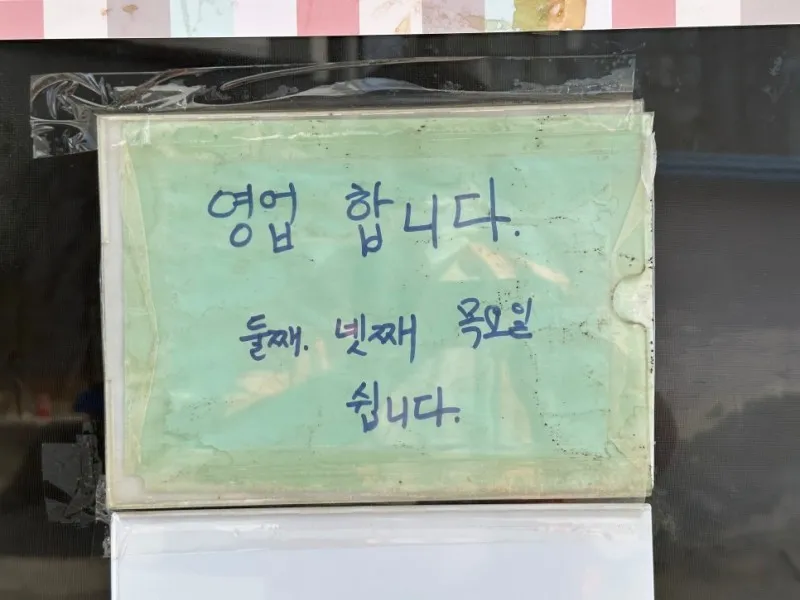 영업 합니다.
둘째. 넷째 목요일
쉽니다.